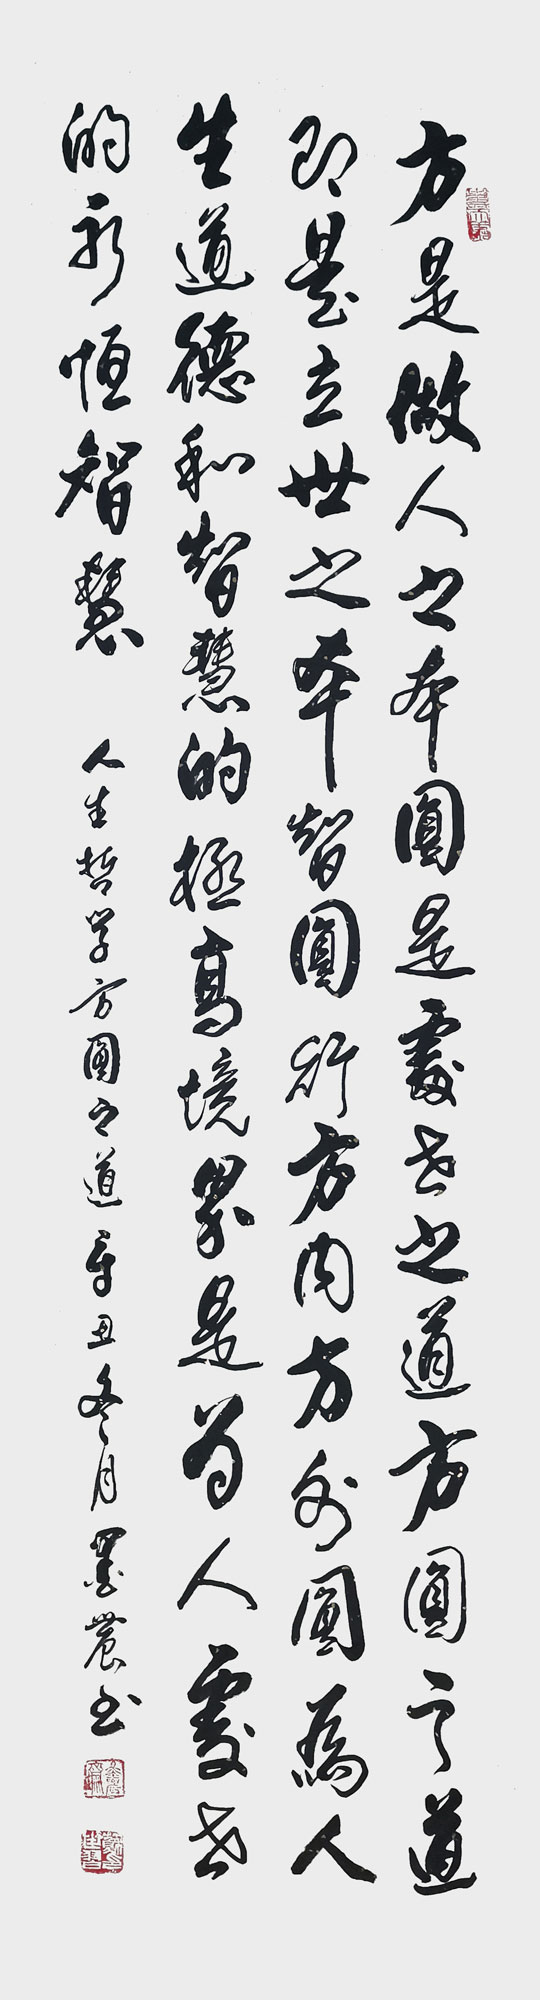 方是做人之本圓是處世之道方圓之道
即是立世之本智圓行方内方外圓為人
生道德和智慧的極高境界是为人處世
的永恒智慧
人生哲学方圓之道辛丑冬月墨農书